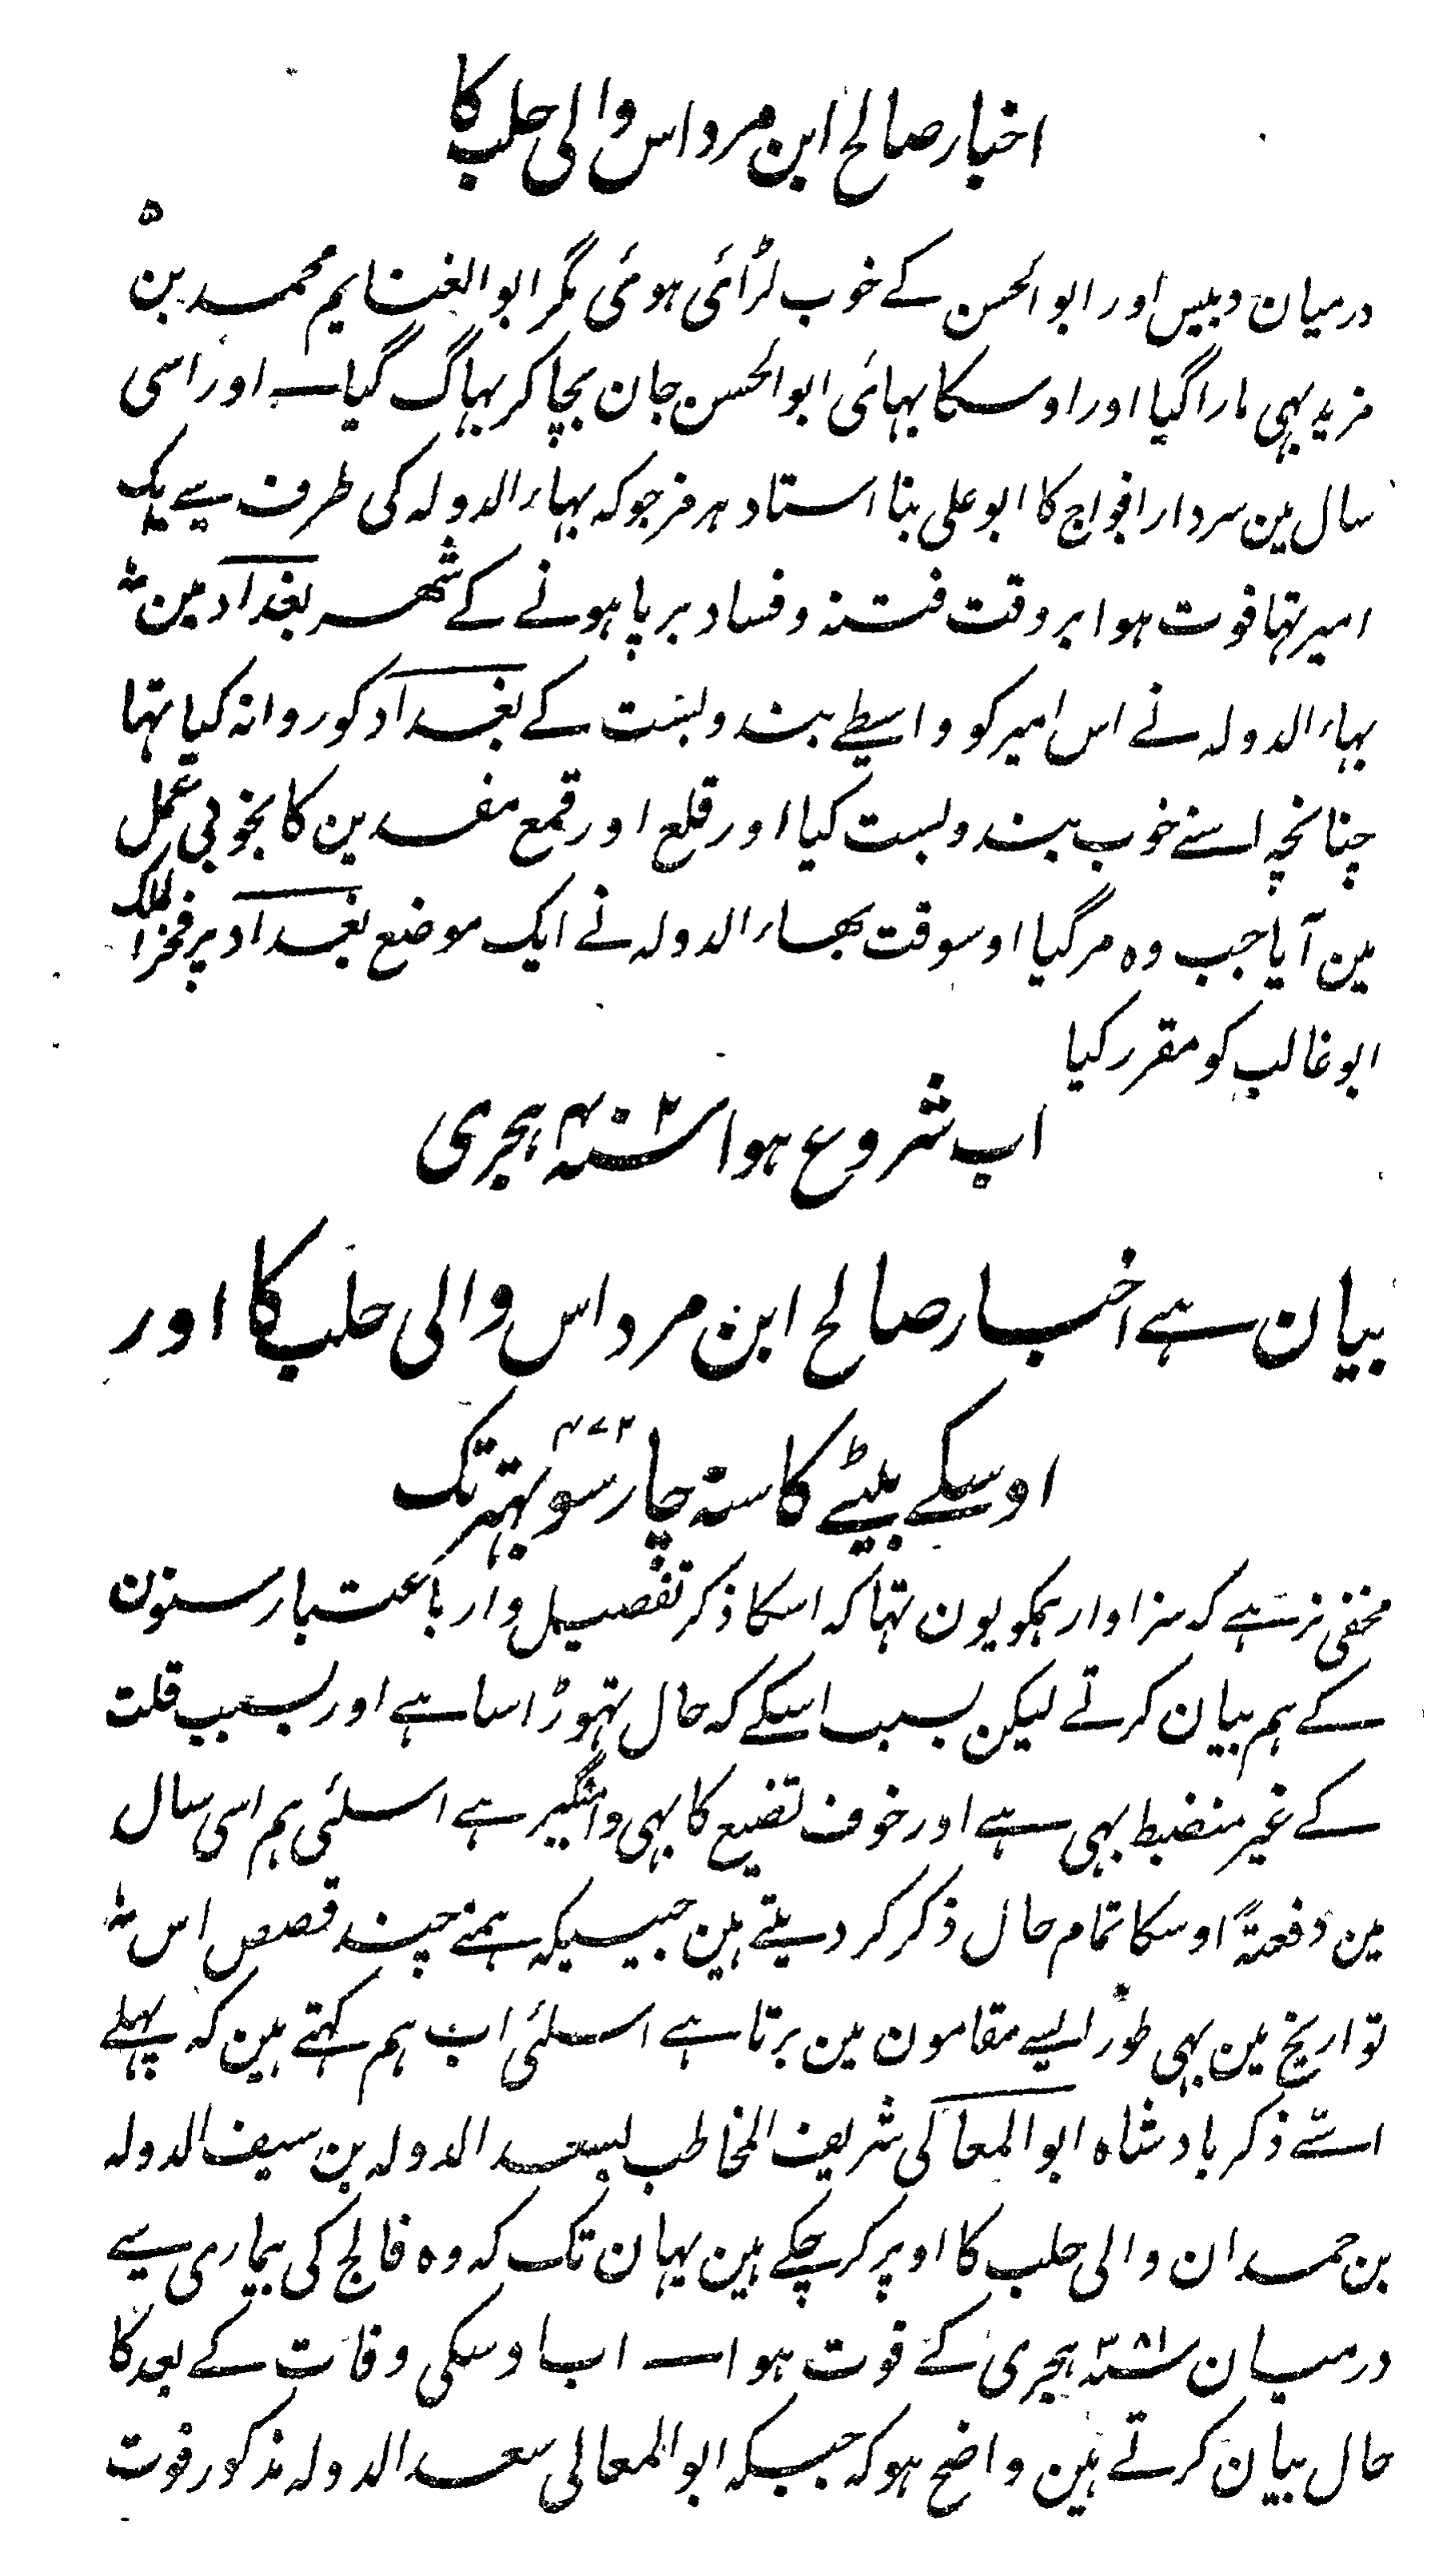 اخبار صالح ابن مرداس والی حلب کا
۵
درمیان دبیس اور ابو الحسن کے خوب لڑائی ہوئی مگر ابو الغنایم محمد بن
مزید بہی مارا گیا اور اوسکا بہائی ابو الحسن جان بچا کر بہاگ گیا ــ اور اسی
سال مین سردار افواج کا ابو علی بنا استاد ہرمز جو کہ بہاء الدولہ کی طرف سے یک
امیر تہا فوت ہوا بر وقت فتنہ و فساد برپا ہونے کے شہر بغداد مین
بہاء الدولہ نے اس امیر کو واسطے بند و بست کے بغداد کو روانہ کیا تہا
چنانچہ اسنے خوب بند و بست کیا اور قلع اور قمع مفسدین کا بخوبی عمل
مین آیا جب وہ مر گیا اوسوقت بہاء الدولہ نے ایک موضع بغداد پر فخر الملک
ابو غالب کو مقرر کیا
اب شروع ہوا سنہ ۴۰۲ ہجری
بیان ہے اخبار صالح ابن مرداس والی حلب کا اور
اوسکے بیٹے کا سنہ چار سو بہتر تک ۴۷۲
مخفی نرہے کہ سزاوار ہمکو یون تہا کہ اسکا ذکر تفصیل وار باعتبار سنون
کے ہم بیان کرتے لیکن بسبب اسکے کہ حال تہوڑا سا ہے اور بسبب قلت
کے غیر منضبط بہی ہے اور خوف تضیع کا بہی دامنگیر ہے اسلئی ہم اسی سال
مین دفعۃً اوسکا تمام حال ذکر کر دیتے ہین جیسیکہ ہمنے چند قصص اس
تواریخ مین بہی طور ایسے مقامون مین برتا ہے اسلئی اب ہم کہتے ہین کہ پہلے
اسّے ذکر بادشاہ ابو المعالی شریف المخاطب بسعد الدولہ بن سیف الدولہ
بن حمدان والی حلب کا اوپر کر چکے ہین یہان تک کہ وہ فالج کی بیماری سے
درمیان سنہ ۳۸۱ ہجری کے فوت ہوا ــ اب اوسکی وفات کے بعد کا
حال بیان کرتے ہین واضح ہو کہ جبکہ ابو المعالی سعد الدولہ مذکور فوت